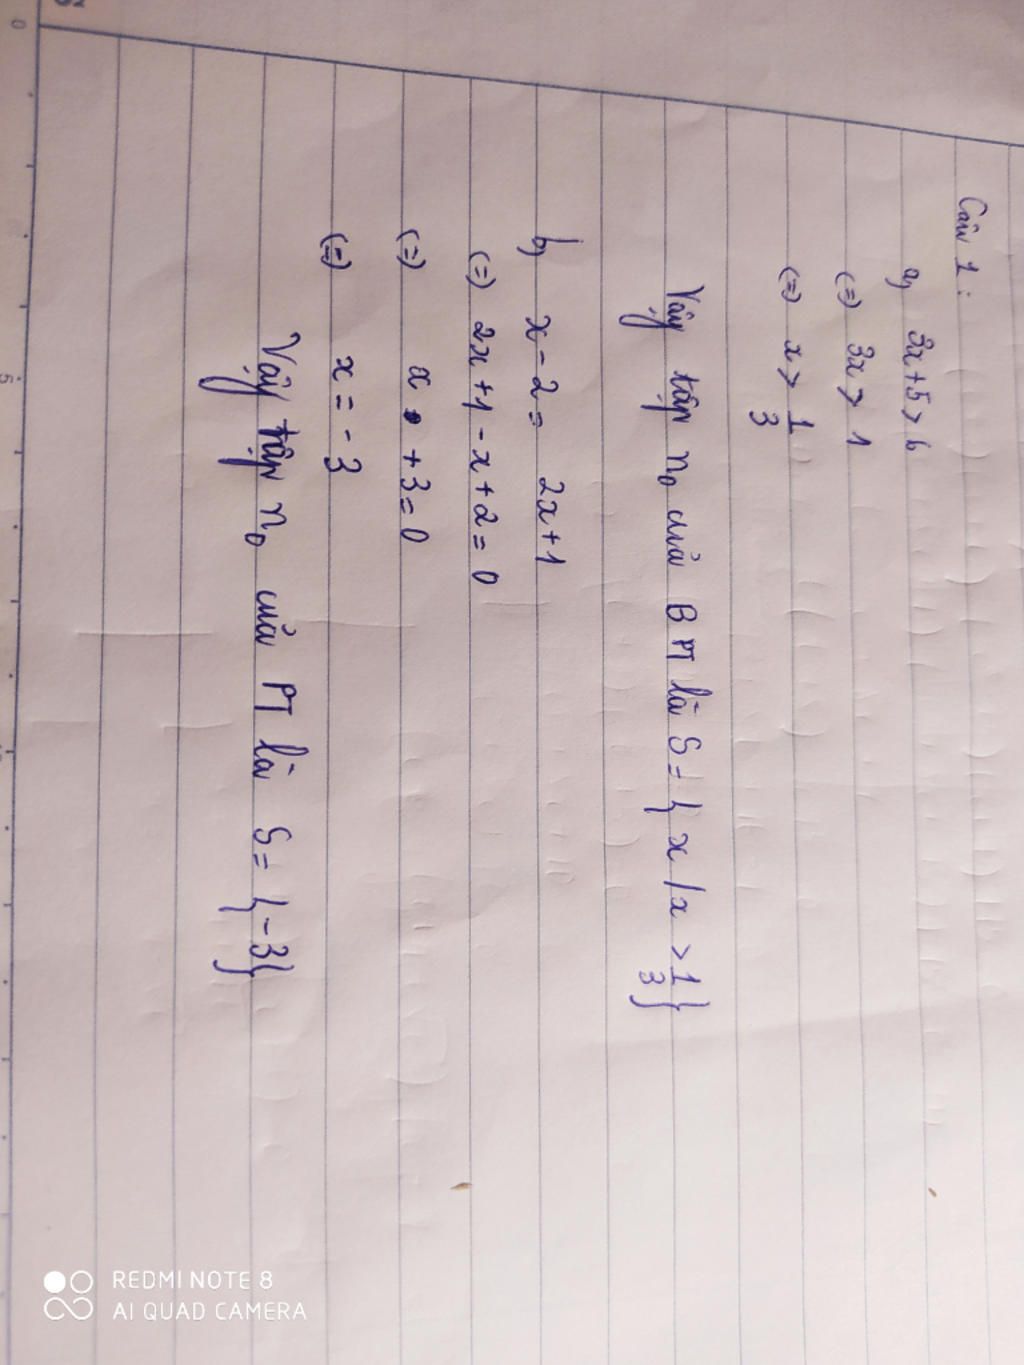 Câu 1:
a, 3x+5>6
(=) 3x > 1
(=) x > 1/3
Vậy tập n₀ của BPT là S = { x / x > 1/3 }
b, x - 2 = 2x+1
(=) 2x+1 - x+2 = 0
(=) x + 3 = 0
(=) x = -3
Vậy tập n₀ của PT là S = {-3}
REDMI NOTE 8
AI QUAD CAMERA